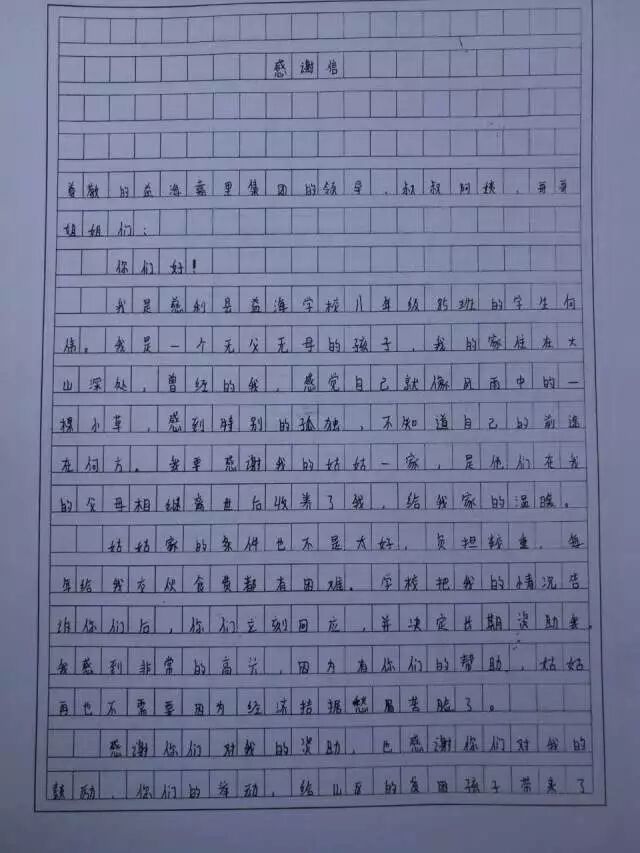 感谢信
尊敬的益海嘉里集团的领导、叔叔阿姨、哥哥
姐姐们：
你们好！
我是慈利县益海学校八年级85班的学生何
伟。我是一个无父无母的孩子，我的家住在大
山深处，曾经的我，感觉自己就像风雨中的一
棵小草，感到特别的孤独，不知道自己的前途
在何方。我要感谢我的姑姑一家，是他们在我
的父母相继离世后收养了我，给我家的温暖。
姑姑家的条件也不是太好，负担较重，每
年给我交伙食费都有困难。学校把我的情况告
诉你们后，你们立刻回应，并决定长期资助我。
我感到非常的高兴，因为有你们的帮助，姑姑
再也不需要因为经济拮据愁眉苦脸了。
感谢你们对我的资助，也感谢你们对我的
鼓励，你们的举动，给山区的贫困孩子带来了